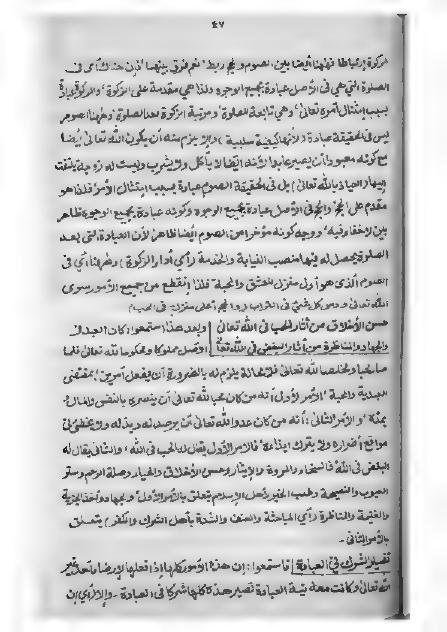 ٤٧
الزكوة إرتباطا فههنا أيضا بين الصوم والحج ربط، نعم فرق بينهما فإن هناك أى فى
الصلوة التى هى فى الأصل عبادة بجميع الوجوه ولذا هى مقدمة على الزكوة، والزكوة عبادة
بسبب إمتثال أمره تعالى، وهى تابعة للصلوة، ومرتبة الزكوة بعد الصلوة وههنا الصوم
ليس فى الحقيقة عبادة ولأنها كيفية سلبية، وإلا يلزم منه أن يكون الله تعالى أيضا
مع كونه معبودا أن يصير عابدا لأنه أيضا لا يأكل ولا يشرب وليست له زوجة يلتفت
إليها، العياذ بالله تعالى، بل فى الحقيقة الصوم عبادة بسبب إمتثال الأمر، فلذا هو
مقدم على الحج، والحج فى الأصل عبادة بجميع الوجوه وكونه عبادة بجميع الوجوه ظاهر
بين لا خفاء فيه، ووجه كونه مؤخرا من الصوم أيضا ظاهر لأن العبادة التى بعد
الصلوة يحصل له فيها منصب النيابة والخدمة أى أداء الزكوة، وههنا أى فى
الصوم الذى هو أول منزل العشق والمحبة فلذا إنقطع من جميع الأمور سوى
الله تعالى وسوى كل شئ فى التراب والحج أعلى منزلة فى الحب
حسن الأخلاق من آثار الحب فى الله تعالى وبعد هذا استمعوا، كان العبد فى
والجهاد والمناظرة من آثار البغض فى الله تعالى الأصل مملوكا ومحكوما لله تعالى فلما
صار محبا ومخلصا لله تعالى فلا محالة يلزم له بالضرورة أن يفعل أمرين بمقتضى
العبدية والمحبة، الأمر الأول: أنه من كان محبا لله تعالى أن يتصدى بالنفس والمال
يمده، والأمر الثانى: أنه من كان عدوا لله تعالى أن يرصد له ويذله ولا يخطئ فى
مواقع أضراره ولا يترك إيذاءه، فالأمر الأول يقال له الحب فى الله، والثانى يقال له
البغض فى الله، فالسخاء والمروة والإيثار وحسن الأخلاق والحياء وصلة الرحم وستر
العيوب والنصيحة وطلب الخير لأهل الإسلام يتعلق بالأمر الأول، والجهاد وأخذ الجزية
والغنيمة والمناظرة أى المباحثة والعنف والشدة بأهل الشرك والكفر يتعلق
بالأمر الثانى۔
تفصيل الشرك فى العبادة فاستمعوا: إن هذه الأمور كلها إذا فعلها لإرضاء أحد غير
الله تعالى وكانت معه نية العبادة تصير هذه كلها شركا فى العبادة۔ وإلا أى إن